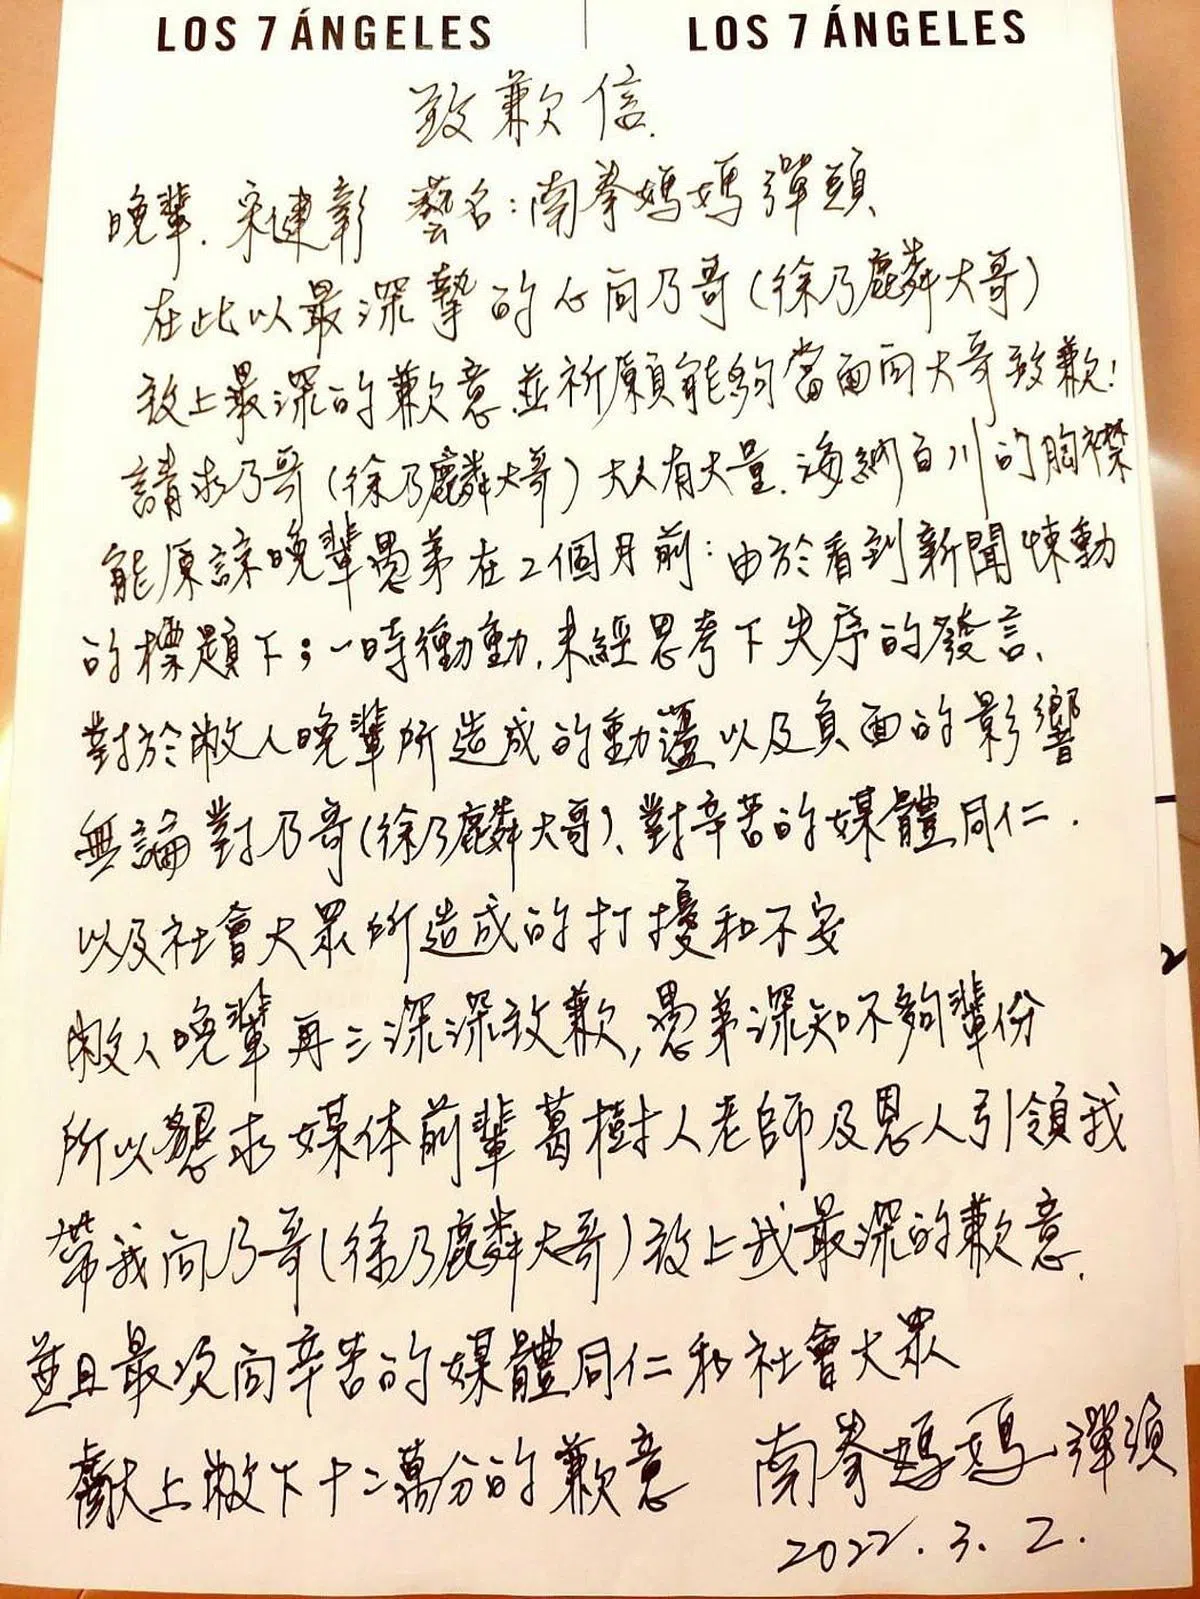 LOS 7 ÁNGELES LOS 7 ÁNGELES
致歉信.
晚輩.宋健彰 藝名:南拳媽媽彈頭
在此以最深摯的心向乃哥(徐乃麟大哥)
致上最深的歉意並祈願能夠當面向大哥致歉!
請求乃哥(徐乃麟大哥)大人有大量.海納百川的胸襟
能原諒晚輩愚弟在2個月前:由於看到新聞悚動
的標題下;一時衝動.未經思考下失序的發言、
對於敝人晚輩所造成的動盪以及負面的影響
無論對乃哥(徐乃麟大哥)、對辛苦的媒體同仁.
以及社會大眾所造成的打擾和不安
敝人晚輩再三深深致歉,愚弟深知不夠輩份
所以懇求媒体前輩葛樹人老師及恩人引領我
帶我向乃哥(徐乃麟大哥)致上我最深的歉意.
並且最次向辛苦的媒體同仁和社會大眾
獻上敝下十二萬分的歉意 南拳媽媽彈頭
2022.3.2.